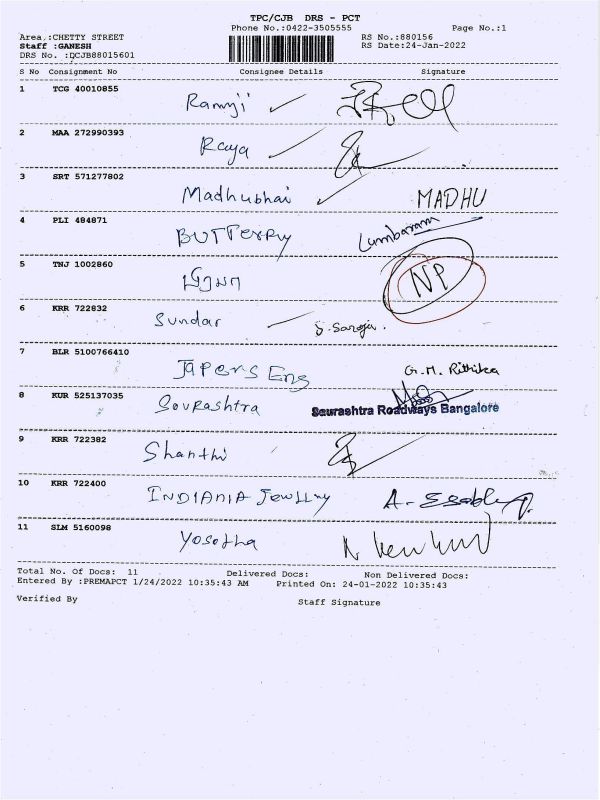 TPC/CJB DRS - PCT
Phone No.:0422-3505555 Page No.:1
Area :CHETTY STREET RS No.:880156
Staff :GANESH RS Date:24-Jan-2022
DRS No. :DCJB88015601
S No Consignment No Consignee Details Signature
1 TCG 40010855 Ramji
2 MAA 272990393 Raya
3 SRT 571277802 Madhubhai MADHU
4 PLI 484871 BUTTERRY Lumbaram
5 TNJ 1002860 NP
6 KRR 722832 Sundar S. Saroja.
7 BLR 5100766410 JAPERS Eng G.M. Rithika
8 KUR 525137035 Sourashtra Saurashtra Roadways Bangalore
9 KRR 722382 Shanthi
10 KRR 722400 INDIANIA Jewllry A.
11 SLM 5160098 Yosotha
Total No. Of Docs: 11 Delivered Docs: Non Delivered Docs:
Entered By :PREMAPCT 1/24/2022 10:35:43 AM Printed On: 24-01-2022 10:35:43
Verified By Staff Signature